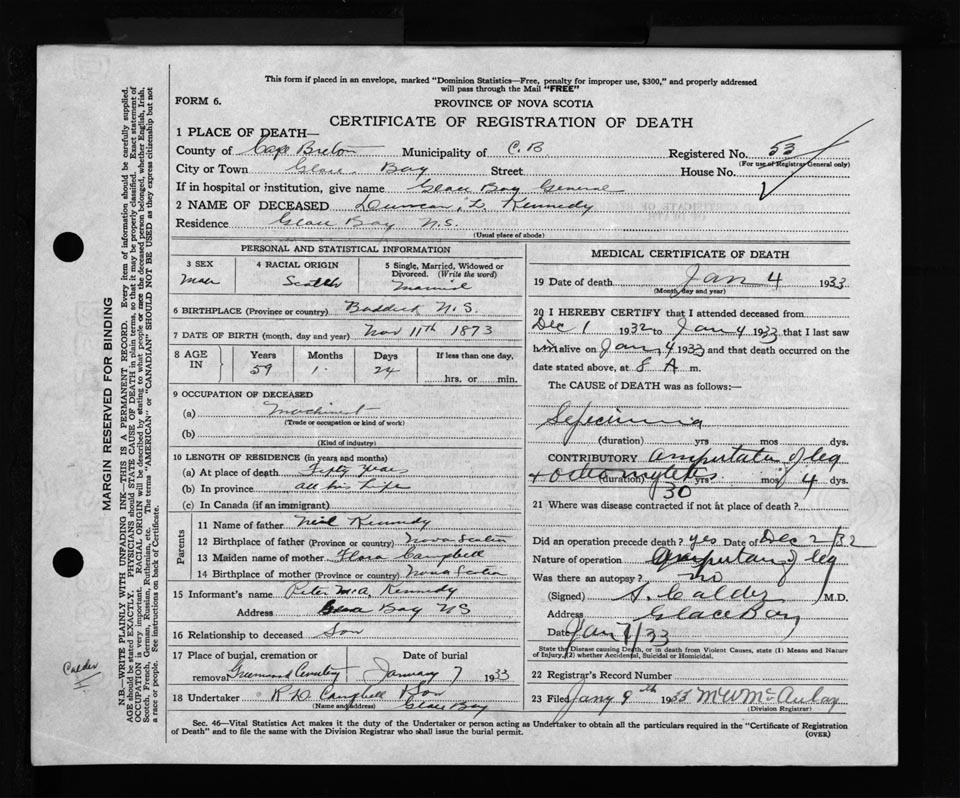 This form if placed in an envelope, marked "Dominion Statistics—Free, penalty for improper use, $300," and properly addressed
will pass through the Mail "FREE"
FORM 6.
PROVINCE OF NOVA SCOTIA
CERTIFICATE OF REGISTRATION OF DEATH
1 PLACE OF DEATH—
County of Cape Breton Municipality of C.B Registered No. 53
(For use of Registrar General only)
City or Town Glace Bay Street House No.
If in hospital or institution, give name Glace Bay General
2 NAME OF DECEASED Duncan, D. Kennedy
Residence Glace Bay N.S.
(Usual place of abode)
PERSONAL AND STATISTICAL INFORMATION
3 SEX
4 RACIAL ORIGIN
5 Single, Married, Widowed or
Divorced. (Write the word)
Male Scotch Married
6 BIRTHPLACE (Province or country) Baddeck N.S.
7 DATE OF BIRTH (month, day and year) Nov 11th 1873
8 AGE
IN
Years Months Days If less than one day,
59 1 24
hrs. or min.
9 OCCUPATION OF DECEASED
(a) Machinist
(Trade or occupation or kind of work)
(b)
(Kind of industry)
10 LENGTH OF RESIDENCE (in years and months)
(a) At place of death Fifty Years
(b) In province all his Life
(c) In Canada (if an immigrant)
Parents
11 Name of father Neil Kennedy
12 Birthplace of father (Province or country) Nova Scotia
13 Maiden name of mother Flora Campbell
14 Birthplace of mother (Province or country) Nova Scotia
15 Informant's name Peter McA Kennedy
Address Glace Bay NS
16 Relationship to deceased Son
17 Place of burial, cremation or
removal Greenwood Cemetery
Date of burial
January 7 1933
18 Undertaker R D Campbell & Son
(Name and address) Glace Bay
MEDICAL CERTIFICATE OF DEATH
19 Date of death Jan 4 1933
(Month, day and year)
20 I HEREBY CERTIFY that I attended deceased from
Dec 1 1932 to Jan 4 1933 that I last saw
him alive on Jan 4 1933 and that death occurred on the
date stated above, at 8 A m.
The CAUSE of DEATH was as follows:—
Septicimia
(duration) yrs mos dys.
CONTRIBUTORY amputation of leg
+ osteomyelitis
(duration) yrs. mos 4 dys.
30
21 Where was disease contracted if not at place of death?
Did an operation precede death? yes Date of Dec 2/32
Nature of operation Amputation of leg
Was there an autopsy? no
(Signed) S. Calder M.D.
Address Glace Bay
Date Jan 7/33
State the Disease causing Death, or in death from Violent Causes, state (1) Means and Nature
of Injury, (2) whether Accidental, Suicidal or Homicidal.
22 Registrar's Record Number
23 Filed Jany 9th 1933 M W McAulay
(Division Registrar)
Sec. 46—Vital Statistics Act makes it the duty of the Undertaker or person acting as Undertaker to obtain all the particulars required in the "Certificate of Registration
of Death" and to file the same with the Division Registrar who shall issue the burial permit.
(OVER)
MARGIN RESERVED FOR BINDING
N.B.—WRITE PLAINLY WITH UNFADING INK—THIS IS A PERMANENT RECORD. Every item of information should be carefully supplied.
AGE should be stated EXACTLY. PHYSICIANS should STATE CAUSE OF DEATH in plain terms, so that it may be properly classified. Exact statement of
OCCUPATION is very important. RACIAL ORIGIN will be described by stating to what people or race the deceased person belonged, whether English, Irish,
Scotch, French, German, Russian, Ruthenian, etc. The terms "AMERICAN" or "CANADIAN" SHOULD NOT BE USED as they express citizenship but not
a race or people. See instructions on back of Certificate.
Calder